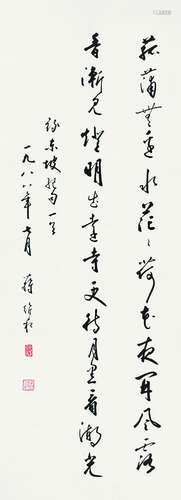 菰蒲无边水茫茫荷花夜开风露
香渐见灯明出远寺更待月黑看湖光
录东坡绝句一首
一九八八年七月 蒋维崧